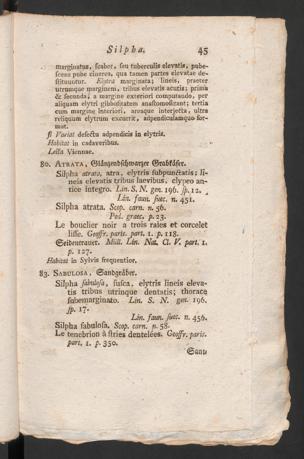 Silpha. 45
marginatus, scaber, seu tuberculis elevatis, pube-
scens pube cinerea, qua tamen partes elevatae de-
stituuntur. Elytra marginata; lineis, praeter
utrumque marginem, tribus elevatis acutis; prima
& secunda, a margine exteriori computando, per
aliquam elytri gibbositatem anastomosizant; tertia
cum margine interiori, areaque interjecta, ultra
reliquum elytrum excurrit, adpendiculamque for-
mat.
β Variat defectu adpendicis in elytris.
Habitat in cadaveribus.
Lesta Viennae.
80. ATRATA, Glänzendschwarzer Grabkäfer.
Silpha atrata, atra, elytris subpunctatis; li-
neis elevatis tribus laevibus, clypeo an-
tice integro. Lin. S. N. gen. 196. sp. 12.
Lin. faun. suec. n. 451.
Silpha atrata. Scop. carn. n. 56.
Pod. graec. p. 23.
Le bouclier noir a trois raies et corcelet
lisse. Geoffr. paris. part. 1. p. 118.
Seidentrauer. Müll. Lin. Nat. Cl. V. part. 1.
p. 127.
Habitat in Sylvis frequentior.
83. SABULOSA, Sandgräber.
Silpha sabulosa, fusca, elytris lineis eleva-
tis tribus utrinque dentatis; thorace
submarginato. Lin. S. N. gen. 196.
sp. 17.
Lin. faun. suec. n. 456.
Silpha sabulosa. Scop. carn. n. 58.
Le tenebrion à stries dentelées. Geoffr. paris.
part. 1. p. 350.
Sand